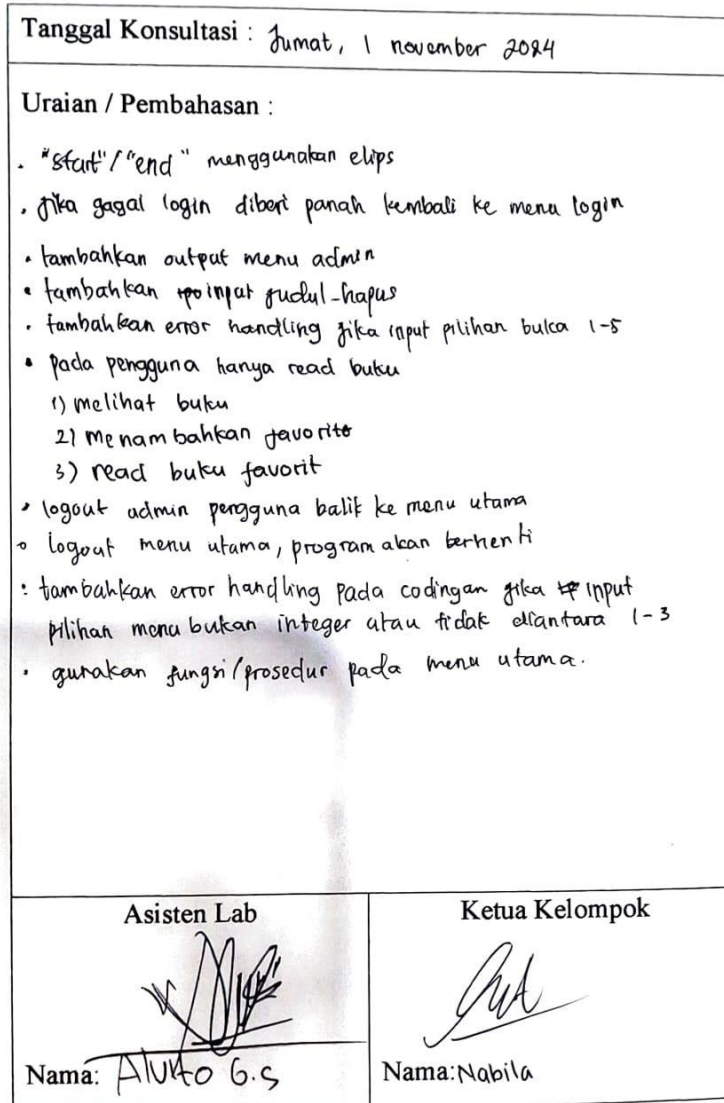 Tanggal Konsultasi : Jumat, 1 november 2024
Uraian / Pembahasan :
. "start"/"end" menggunakan elips
. jika gagal login diberi panah kembali ke menu login
• tambahkan output menu admin
• tambahkan input judul-hapus
• tambahkan error handling jika input pilihan bukan 1-5
• pada pengguna hanya read buku
1) melihat buku
2) menambahkan favorite
3) read buku favorit
• logout admin pengguna balik ke menu utama
• logout menu utama, program akan berhenti
: tambahkan error handling pada codingan jika input
pilihan menu bukan integer atau tidak diantara 1-3
• gunakan fungsi/prosedur pada menu utama.
Asisten Lab
Ketua Kelompok
Nama: G.S
Nama: Nabila